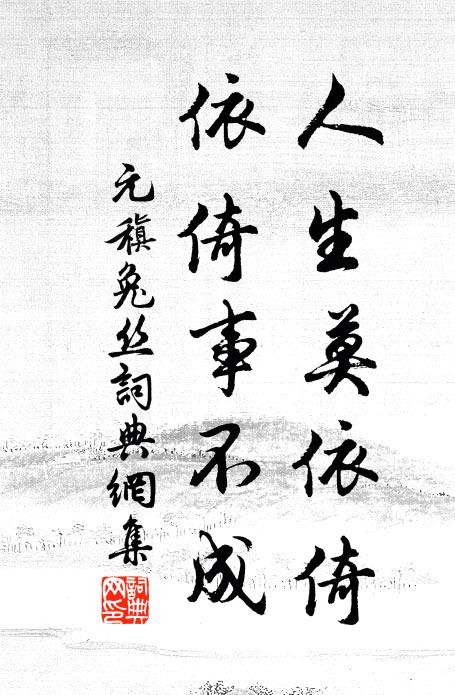 人生莫依倚
依倚事不成
元稹兔丝詞典網集
詞典
网印